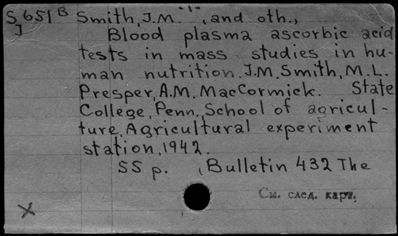 S651 B Smith, J.M. "1" , and oth.,
J Blood plasma ascorbic acid
tests in mass studies in hu-
man nutrition. J.M. Smith, M.L.
Presper, A.M. MacCormick. State
College, Penn., School of agricul-
ture, Agricultural experiment
station, 1942.
SS p. , Bulletin 432 The
См. след. карт.
X